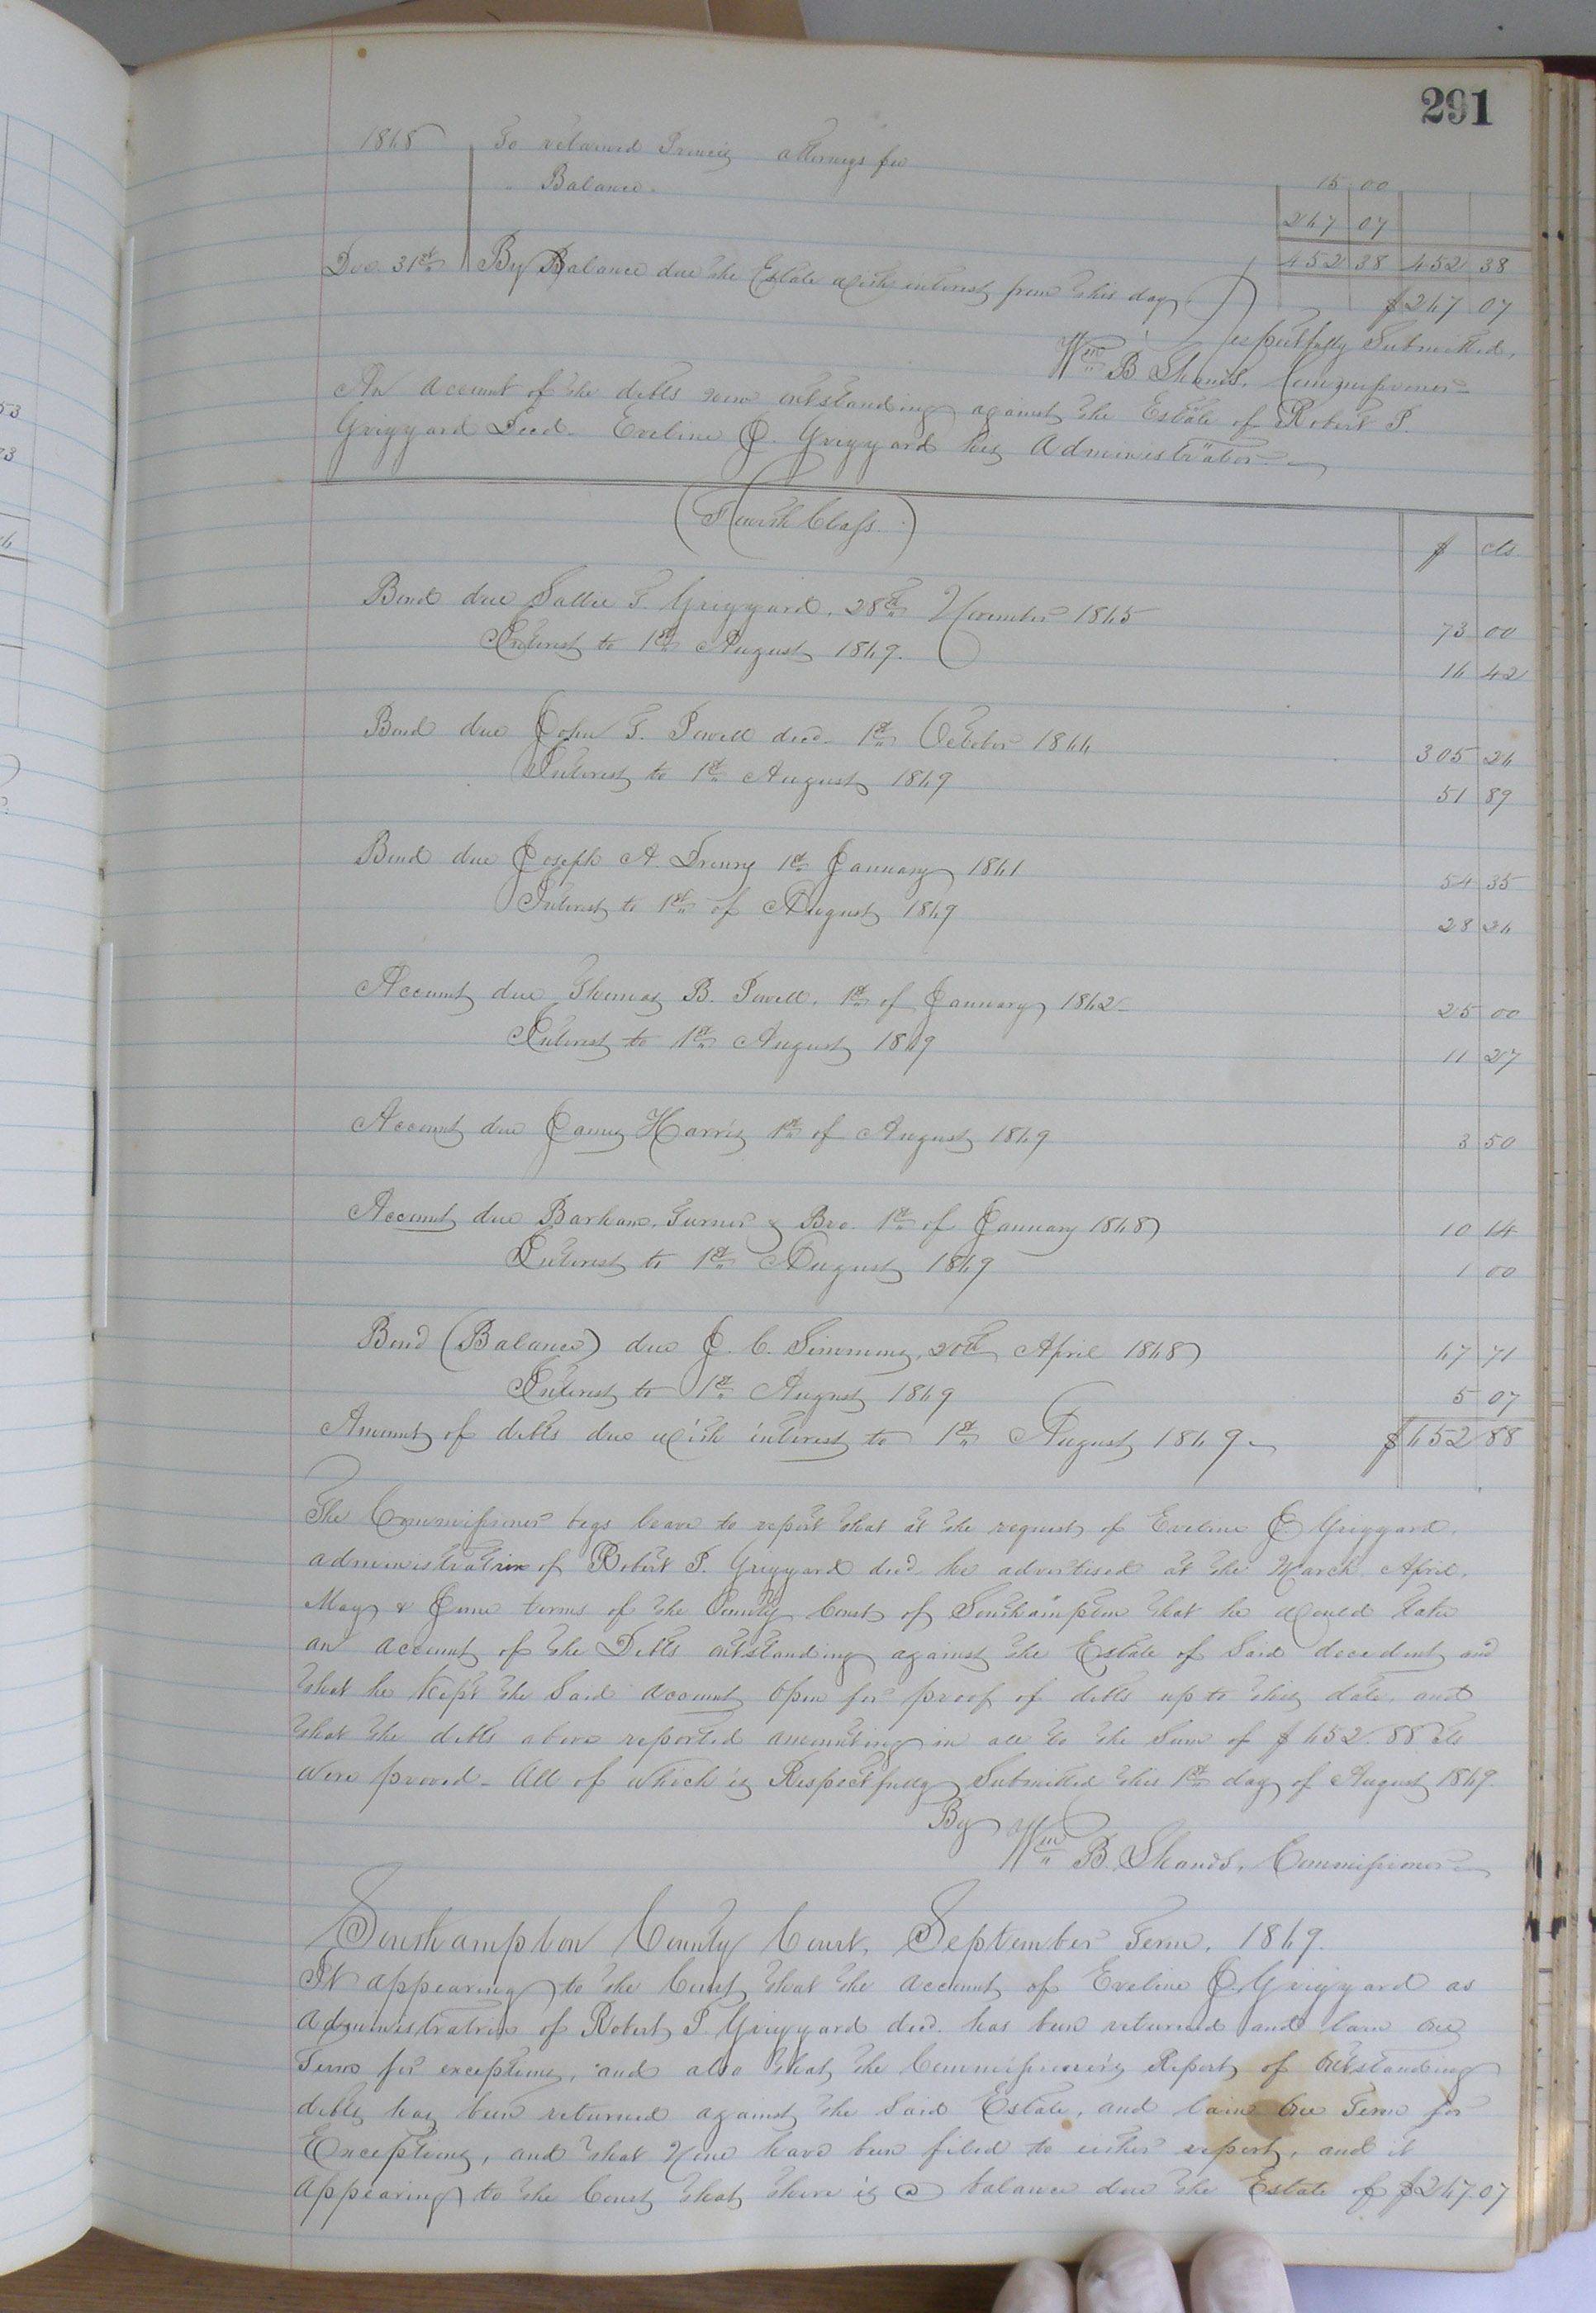 291
1868 To retained attorneys fee 15 00
" Balance. 267 07
452 38 452 38
Dec. 31st By Balance due the Estate with interest from this day $267 07
Respectfully Submitted,
Wm B Shands, Commissioner
An Account of the debts now outstanding against the Estate of Robert P.
Grizzard Decd. Eveline J. Grizzard his Administrator
(Fourth Class.)
$ cts
Bond due Sallie T. Grizzard, 28th November 1865 73 00
Interest to 1st August 1869. 16 42
Bond due John T. Powell decd. 1st October 1866 305 26
Interest to 1st August 1869 51 89
Bond due Joseph A. Drewry 1st January 1861 54 35
Interest to 1st of August 1869 28 26
Account due Thomas B. Powell, 1st of January 1862 25 00
Interest to 1st August 1869 11 27
Account due James Harris 1st of August 1869 3 50
Account due Barham, Turner & Bro. 1st of January 1868 10 14
Interest to 1st August 1869 1 00
Bond (Balance) due J. C. Simmons, 20th April 1868 67 71
Interest to 1st August 1869 5 07
Amount of debts due with interest to 1st August 1869 $652 88
The Commissioner begs leave to report that at the request of Eveline J Grizzard,
administratrix of Robert P. Grizzard decd. he advertised at the March, April,
May & June terms of the County Court of Southampton that he would take
an account of the Debts outstanding against the Estate of Said decedent and
that he kept the Said account open for proof of debts up to this date, and
that the debts above reported amounting in all to the Sum of $652.88 cts
were proved. All of which is Respectfully Submitted this 1st day of August 1869.
By Wm B. Shands, Commissioner
Southampton County Court, September Term, 1869.
It appearing to the Court that the account of Eveline J. Grizzard as
administratrix of Robert P. Grizzard decd. has been returned and lain one
Term for exceptions, and also that the Commissioner's Report of Outstanding
debts has been returned against the Said Estate, and lain One Term for
Exceptions, and that None have been filed to either report, and it
appearing to the Court that there is a balance due the Estate of $267.07